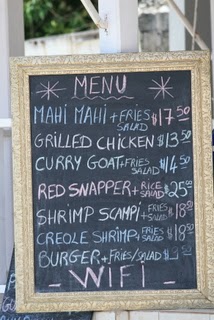 MENU
MAHI MAHI + FRIES SALAD $17.50
GRILLED CHICKEN $13.50
CURRY GOAT + FRIES SALAD $14.50
RED SNAPPER + RICE SALAD $25.00
SHRIMP SCAMPI + FRIES SALAD $18.50
CREOLE SHRIMP + FRIES SALAD $18.50
BURGER + FRIES/SALAD
- WIFI -